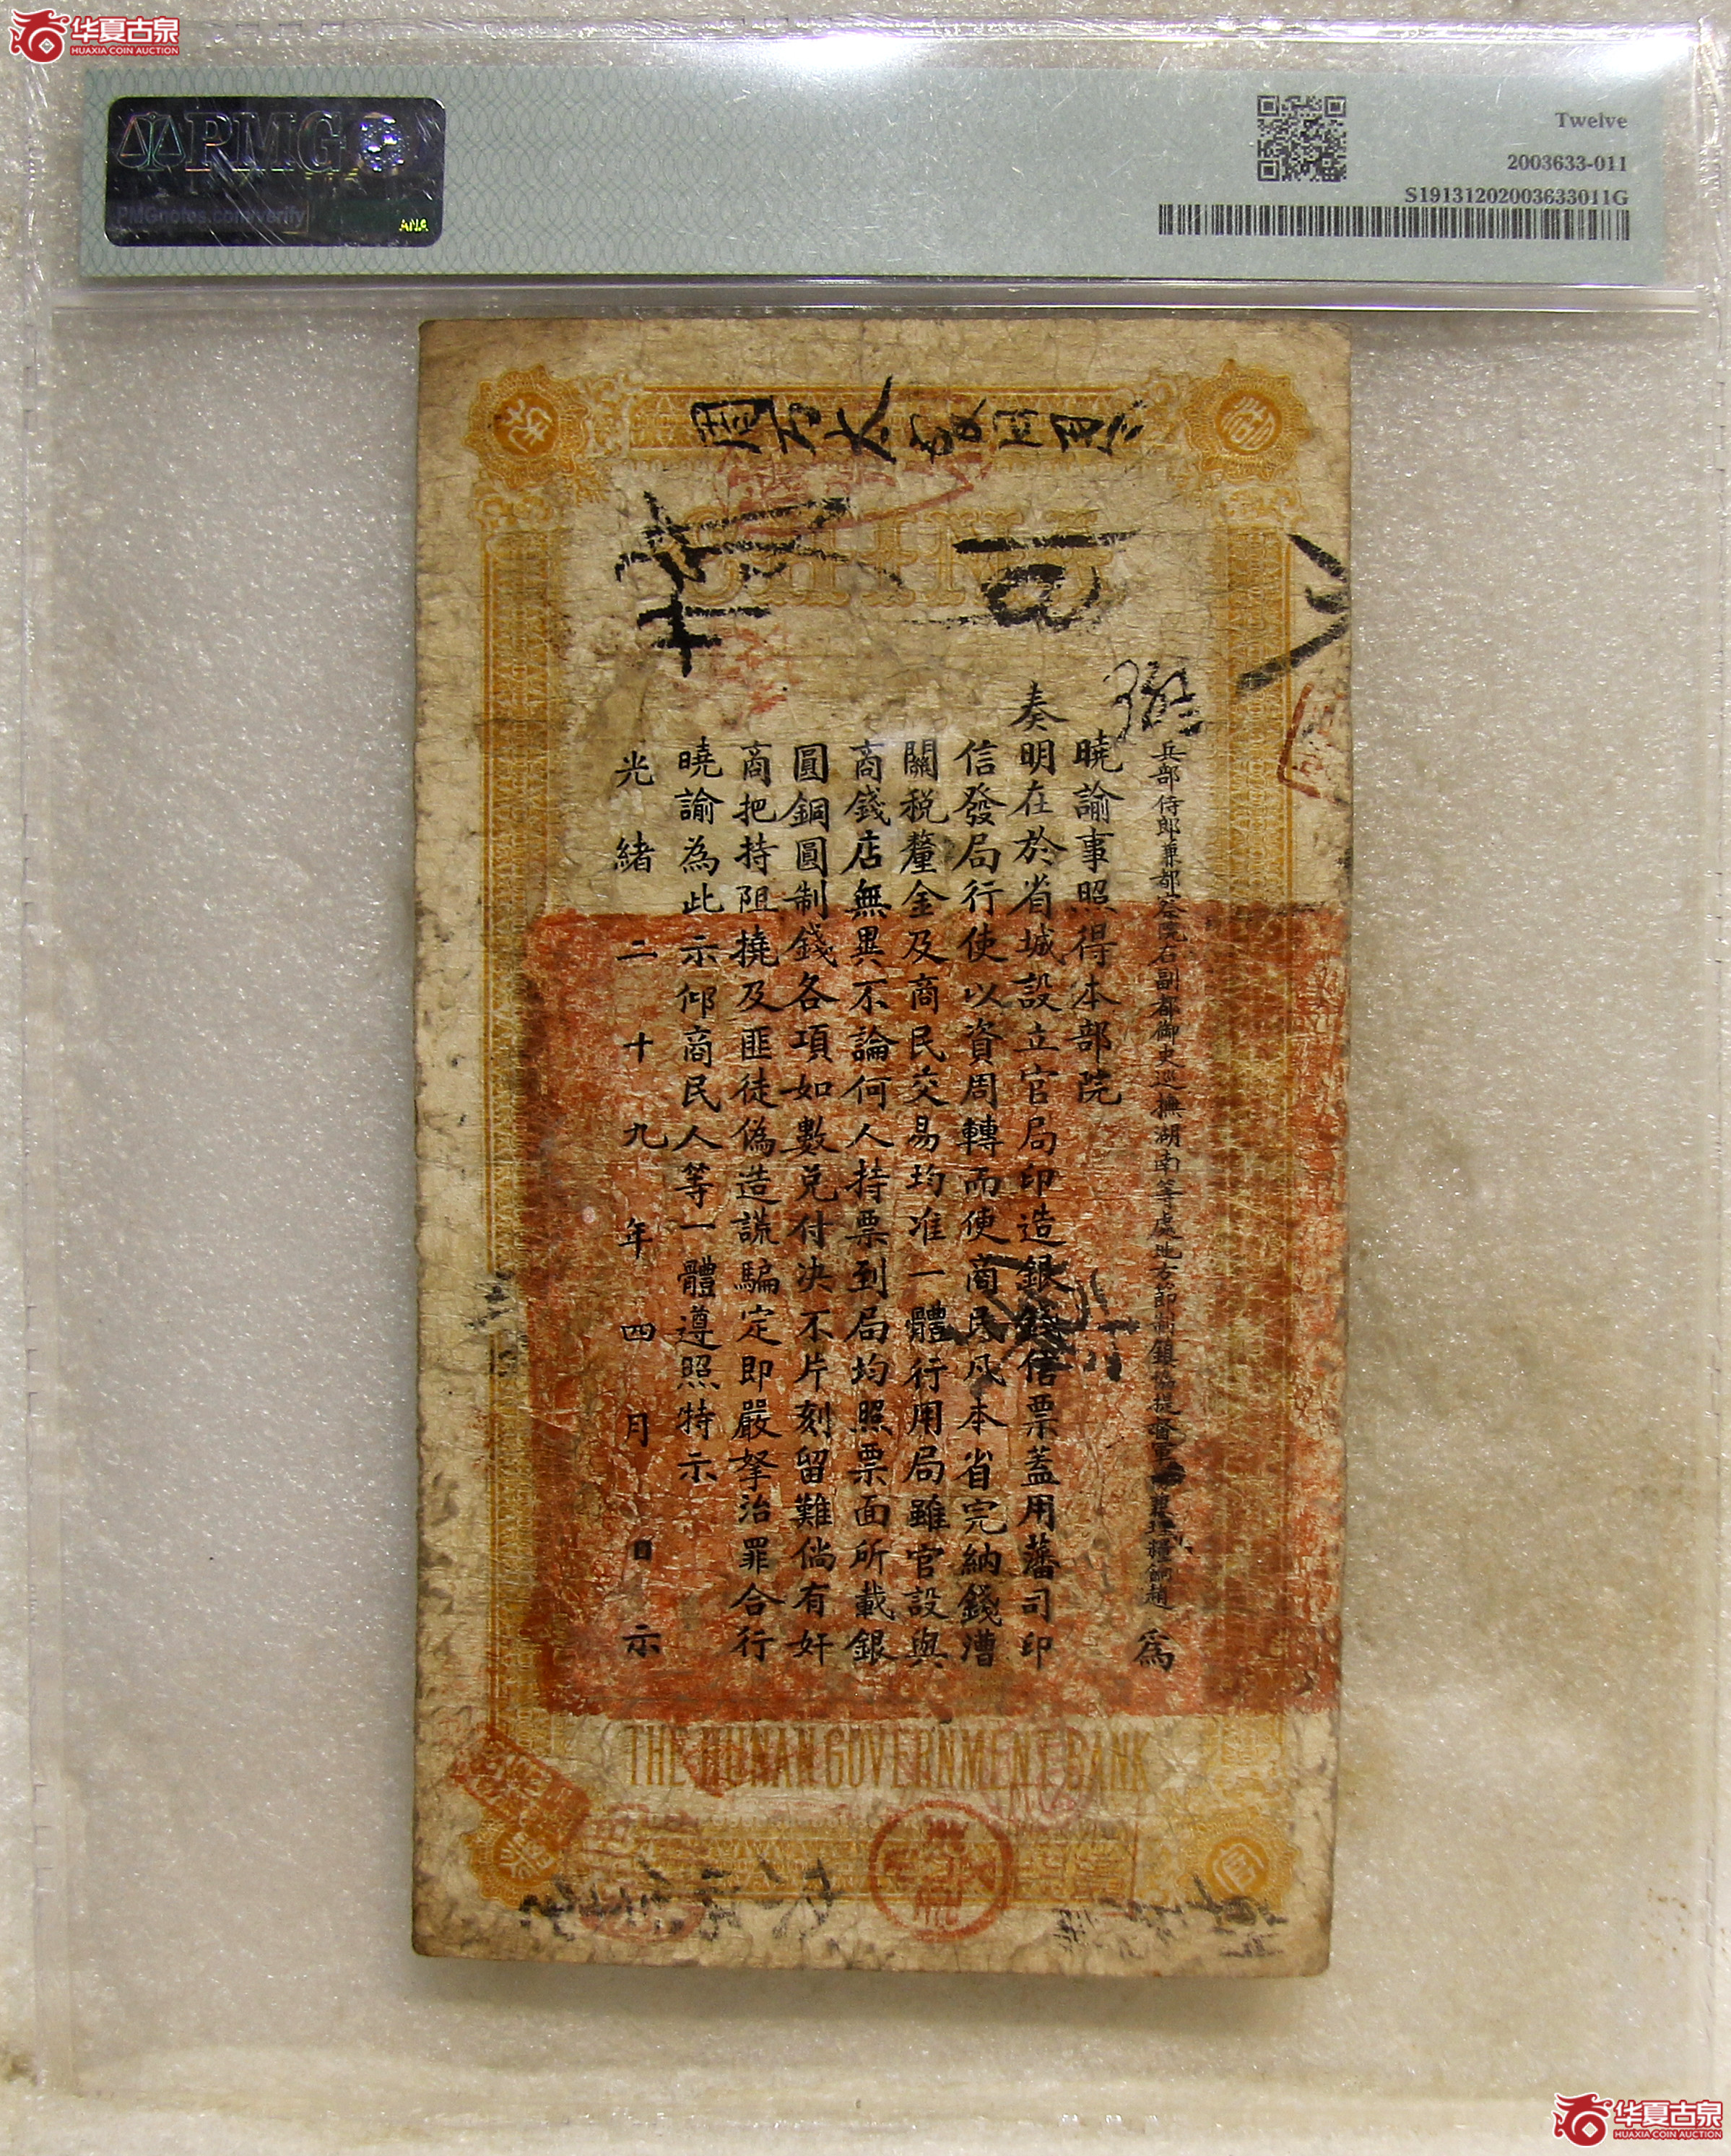 华夏古泉
HUAXIA COIN AUCTION
PMG
PMGnotes.com/verify
Twelve
2003633-011
S19131202003633011G
CHINA
兵部侍郎兼都察院右副都御史巡撫湖南等處地方節制鎮協提督軍務糧餉趙 為
曉諭事照得本部院
奏明在於省城設立官局印造銀錢信票蓋用藩司印
信發局行使以資周轉而使商民凡本省完納錢漕
關稅釐金及商民交易均准一體行用局雖官設與
商錢店無異不論何人持票到局均照票面所載銀
圓銅圓制錢各項如數兌付決不片刻留難倘有奸
商把持阻撓及匪徒偽造謊騙定即嚴拏治罪合行
曉諭為此示仰商民人等一體遵照特示
光緒二十九年四月 日示
THE HUNAN GOVERNMENT BANK
华夏古泉
HUAXIA COIN AUCTION